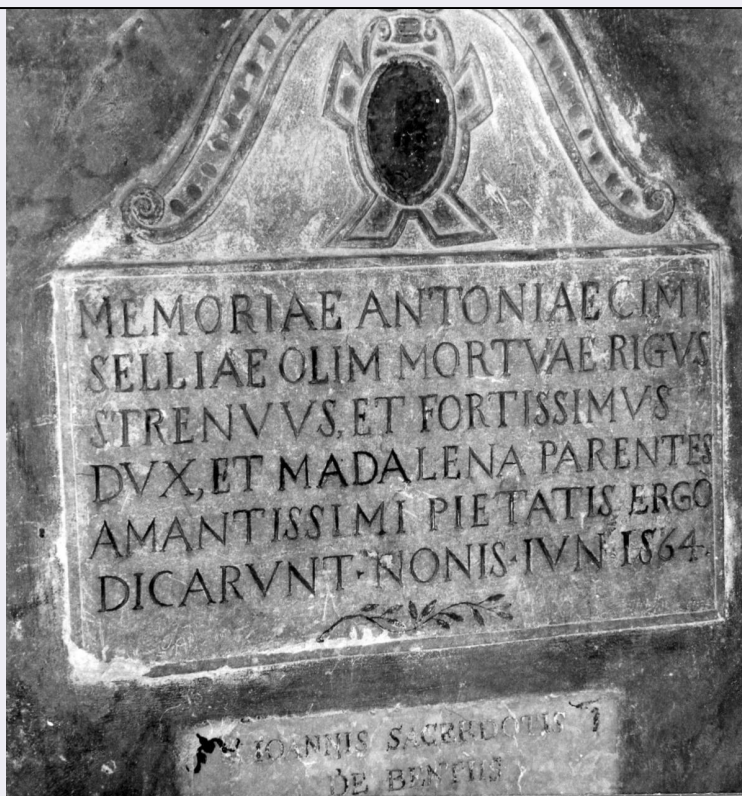 MEMORIAE ANTONIAE CIMI
SELLIAE OLIM MORTVAE RIGVS
STRENVVS, ET FORTISSIMVS
DVX, ET MADALENA PARENTES
AMANTISSIMI PIETATIS ERGO
DICARVNT · NONIS · IVN 1564.
IOANNIS SACERDOTIS
DE BENTIIS